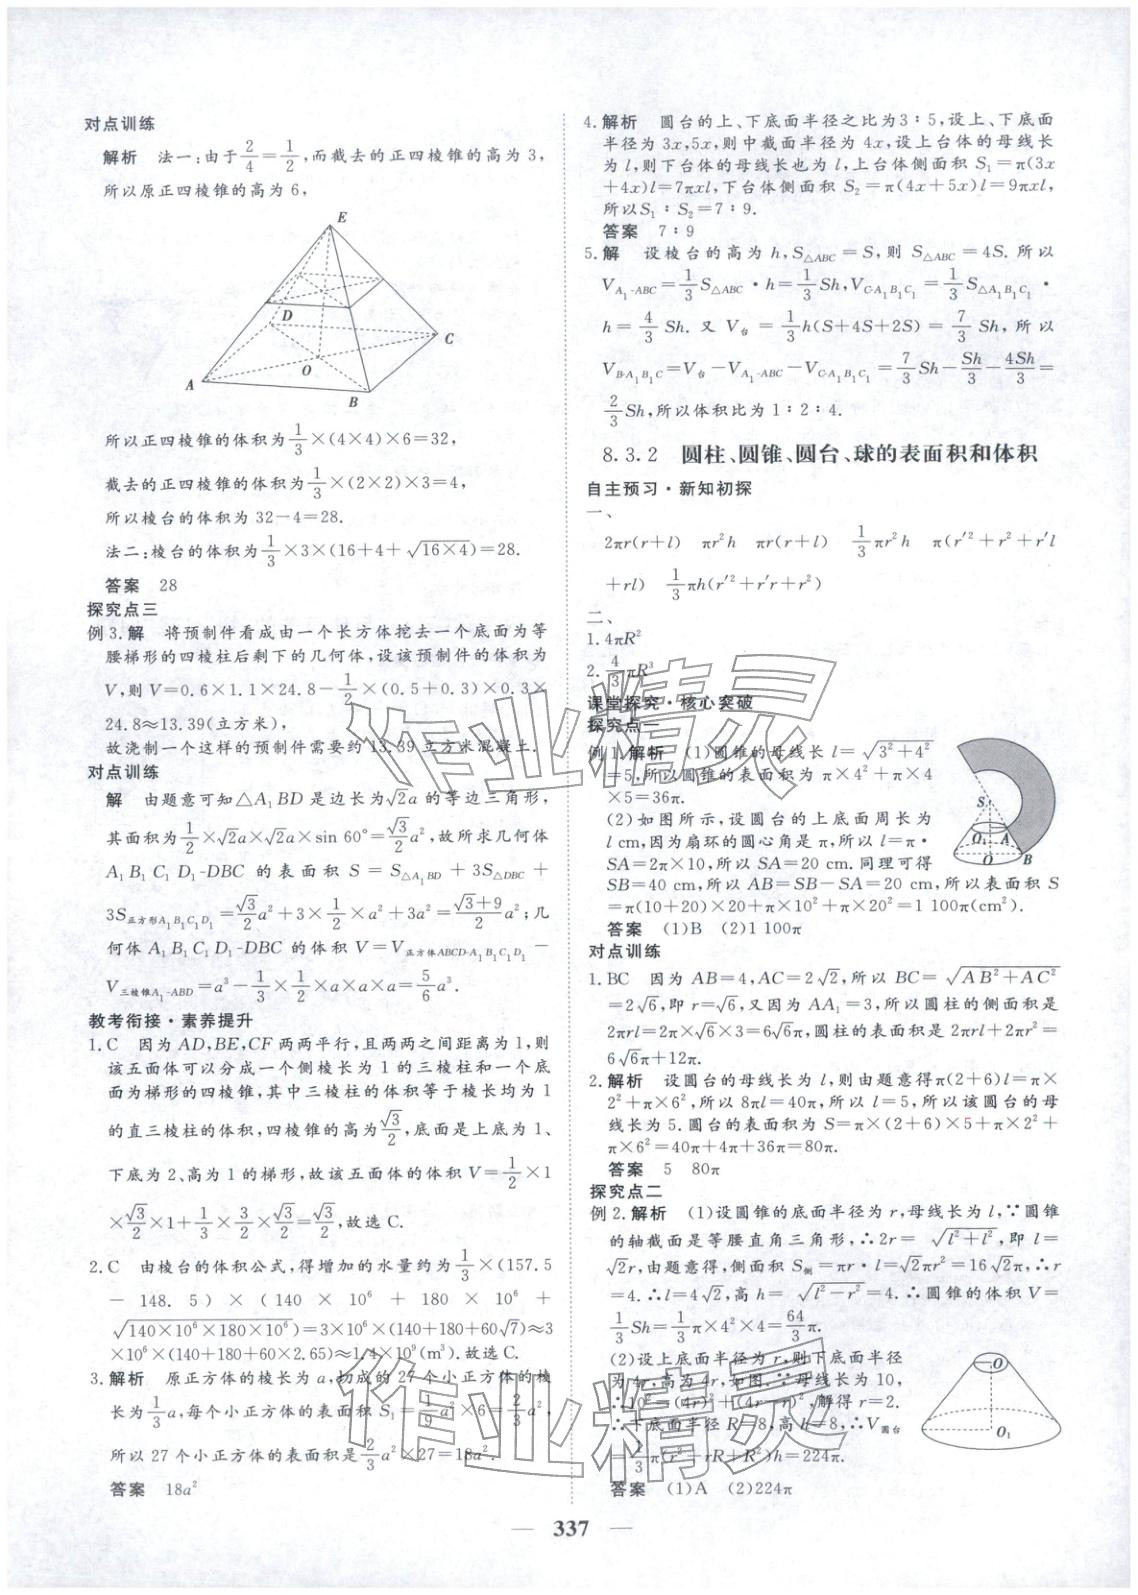 对点训练
解析 法一:由于2/4=1/2,而截去的正四棱锥的高为 3,
所以原正四棱锥的高为 6,
E
D
C
O
A
B
所以正四棱锥的体积为1/3×(4×4)×6=32,
截去的正四棱锥的体积为1/3×(2×2)×3=4,
所以棱台的体积为 32-4=28.
法二:棱台的体积为1/3×3×(16+4+√(16×4))=28.
答案 28
探究点三
例 3.解 将预制件看成由一个长方体挖去一个底面为等
腰梯形的四棱柱后剩下的几何体,设该预制件的体积为
V,则 V=0.6×1.1×24.8-1/2×(0.5+0.3)×0.3×
24.8≈13.39(立方米),
故浇制一个这样的预制件需要约 13.39 立方米混凝土.
对点训练
解 由题意可知△A₁BD 是边长为√2a 的等边三角形,
其面积为1/2×√2a×√2a×sin 60°=√3/2a²,故所求几何体
A₁B₁C₁D₁-DBC 的表面积 S=S△A₁BD+3S△DBC+
3S正方形A₁B₁C₁D₁=√3/2a²+3×1/2×a²+3a²=(√3+9)/2a²;几
何体 A₁B₁C₁D₁-DBC 的体积 V=V正方体ABCD-A₁B₁C₁D₁-
V三棱锥A₁-ABD=a³-1/3×1/2×a×a×a=5/6a³.
教考衔接·素养提升
1.C 因为 AD,BE,CF 两两平行,且两两之间距离为 1,则
该五面体可以分成一个侧棱长为 1 的三棱柱和一个底
面为梯形的四棱锥,其中三棱柱的体积等于棱长均为 1
的直三棱柱的体积,四棱锥的高为√3/2,底面是上底为 1、
下底为 2、高为 1 的梯形,故该五面体的体积 V=1/2×1
×√3/2×1+1/3×3/2×√3/2=√3/2,故选 C.
2.C 由棱台的体积公式,得增加的水量约为1/3×(157.5
-148.5)×(140×10⁶+180×10⁶+
√(140×10⁶×180×10⁶))=3×10⁶×(140+180+60√7)≈3
×10⁶×(140+180+60×2.65)≈1.4×10⁹(m³).故选 C.
3.解析 原正方体的棱长为 a,切成的 27 个小正方体的棱
长为1/3a,每个小正方体的表面积 S₁=1/9a²×6=2/3a²,
所以 27 个小正方体的表面积是2/3a²×27=18a².
答案 18a²
4.解析 圆台的上、下底面半径之比为 3∶5,设上、下底面
半径为 3x,5x,则中截面半径为 4x,设上台体的母线长
为 l,则下台体的母线长也为 l,上台体侧面积 S₁=π(3x
+4x)l=7πxl,下台体侧面积 S₂=π(4x+5x)l=9πxl,
所以S₁∶S₂=7∶9.
答案 7∶9
5.解 设棱台的高为 h,S△ABC=S,则 S△ABC=4S.所以
V A₁-ABC=1/3S△ABC·h=1/3Sh,V C-A₁B₁C₁=1/3S△A₁B₁C₁·
h=4/3Sh.又 V台=1/3h(S+4S+2S)=7/3Sh,所以
V B-A₁B₁C=V台-V A₁-ABC-V C-A₁B₁C₁=7/3Sh-Sh/3-4Sh/3=
2/3Sh,所以体积比为 1∶2∶4.
8.3.2 圆柱、圆锥、圆台、球的表面积和体积
自主预习·新知初探
一、
2πr(r+l) πr²h πr(r+l) 1/3πr²h π(r′²+r²+r′l
+rl) 1/3πh(r′²+r′r+r²)
二、
1.4πR²
2.4/3πR³
课堂探究·核心突破
探究点一
例 1.解析 (1)圆锥的母线长 l=√(3²+4²)
=5,所以圆锥的表面积为 π×4²+π×4
×5=36π.
(2)如图所示,设圆台的上底面周长为
l cm,因为扇环的圆心角是 π,所以 l=π·
SA=2π×10,所以 SA=20 cm.同理可得
SB=40 cm,所以 AB=SB-SA=20 cm,所以表面积 S
=π(10+20)×20+π×10²+π×20²=1 100π(cm²).
S
O₁
A
O
B
答案 (1)B (2)1 100π
对点训练
1.BC 因为 AB=4,AC=2√2,所以 BC=√(AB²+AC²)
=2√6,即 r=√6,又因为 AA₁=3,所以圆柱的侧面积是
2πrl=2π×√6×3=6√6π,圆柱的表面积是 2πrl+2πr²=
6√6π+12π.
2.解析 设圆台的母线长为 l,则由题意得π(2+6)l=π×
2²+π×6²,所以 8πl=40π,所以 l=5,所以该圆台的母
线长为 5.圆台的表面积为 S=π×(2+6)×5+π×2²+
π×6²=40π+4π+36π=80π.
答案 5 80π
探究点二
例 2.解析 (1)设圆锥的底面半径为 r,母线长为 l,∵圆锥
的轴截面是等腰直角三角形,∴2r=√(l²+l²),即 l=
√2r,由题意得,侧面积 S侧=πr·l=√2πr²=16√2π,∴r
=4.∴l=4√2,高 h=√(l²-r²)=4.∴圆锥的体积 V=
1/3Sh=1/3π×4²×4=64/3π.
(2)设上底面半径为 r,则下底面半径
为 4r,高为 4r,如图.∵母线长为 10,
∴10²=(4r)²+(4r-r)²,解得 r=2.
∴下底面半径 R=8,高 h=8,∴V圆台
=1/3π(r²+rR+R²)h=224π.
O
O₁
答案 (1)A (2)224π
作业精灵
作业精灵
337